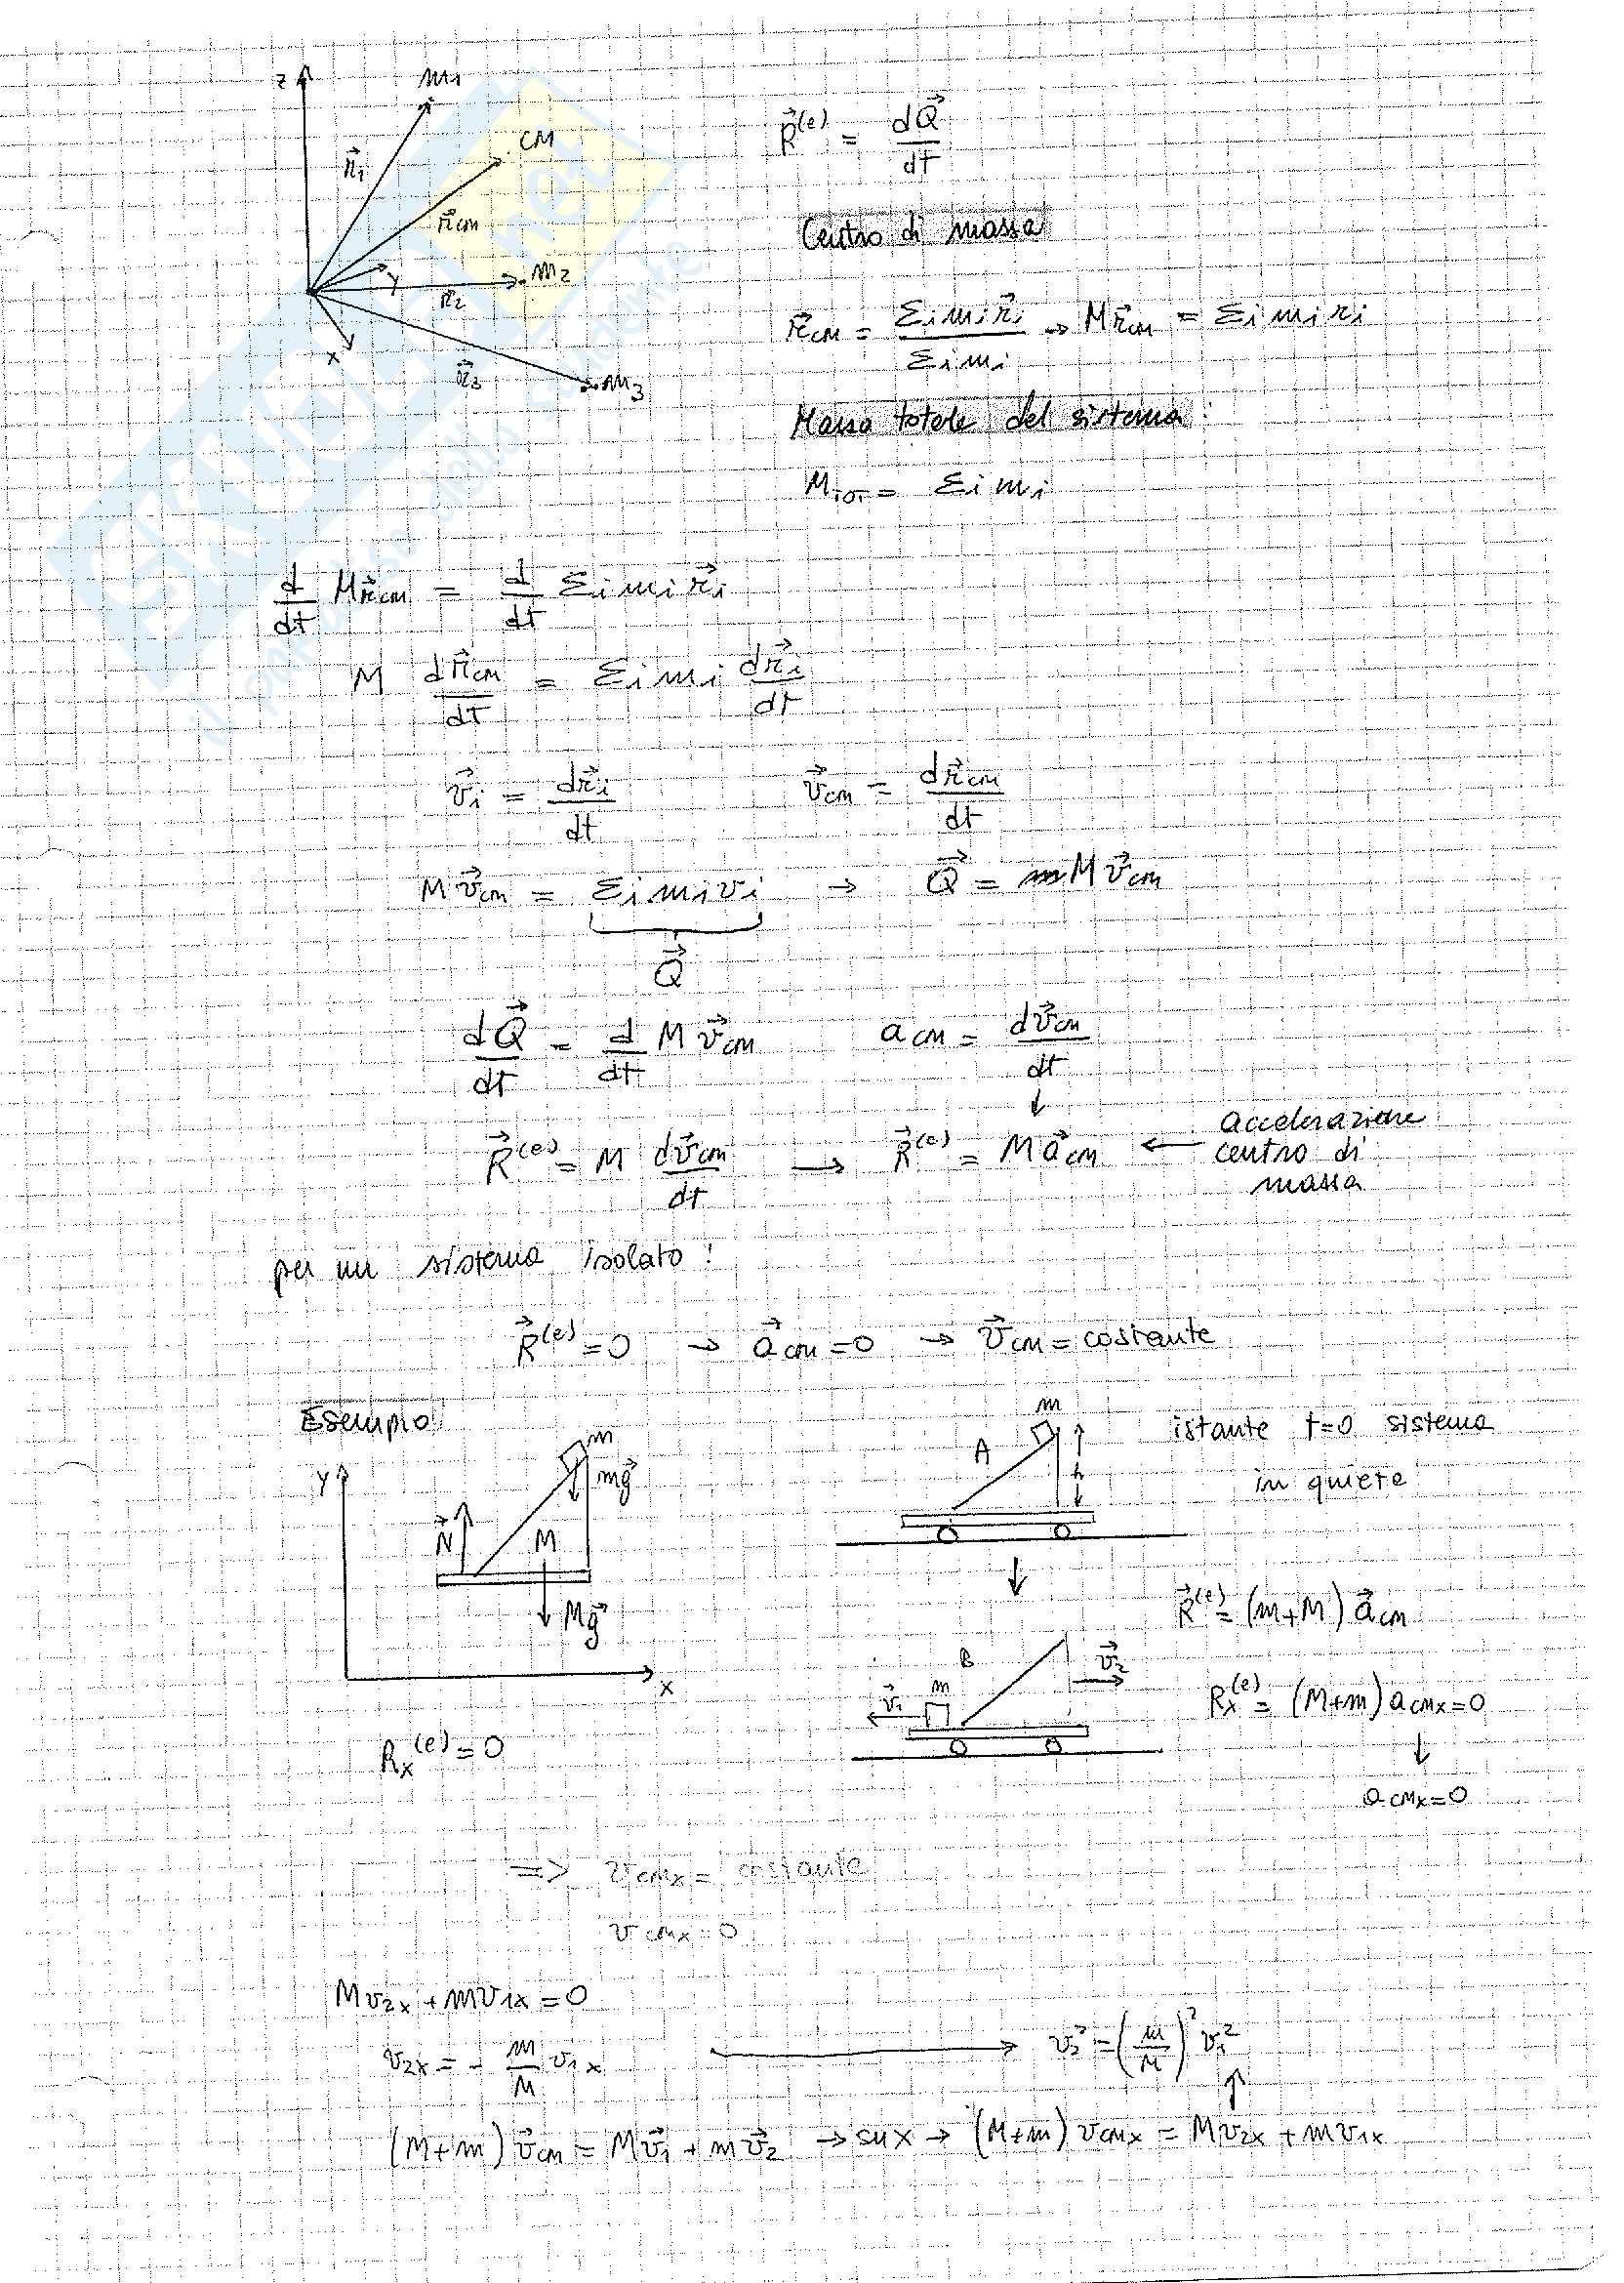 z
m₁
r⃗₁
CM
r⃗cm
y
m₂
r⃗₂
x
r⃗₃
m₃
R⃗⁽ᵉ⁾ = dQ⃗/dt
Centro di massa
r⃗cm = Σi mi r⃗i / Σi mi → M r⃗cm = Σi mi ri
Massa totale del sistema:
MTOT = Σi mi
d/dt M r⃗cm = d/dt Σi mi r⃗i
M dr⃗cm/dt = Σi mi dr⃗i/dt
v⃗i = dr⃗i/dt v⃗cm = dr⃗cm/dt
M v⃗cm = Σi mi vi → Q⃗ = M v⃗cm
Q⃗
dQ⃗/dt = d/dt M v⃗cm acm = dv⃗cm/dt
↓
R⃗⁽ᵉ⁾ = M dv⃗cm/dt → R⃗⁽ᵉ⁾ = M a⃗cm ← accelerazione
centro di
massa
per un sistema isolato:
R⃗⁽ᵉ⁾ = 0 → a⃗cm = 0 → v⃗cm = costante
Esempio
y
m
mg⃗
N⃗
M
Mg⃗
x
Rx⁽ᵉ⁾ = 0
m
A
h
istante t=0 sistema
in quiete
↓
R⃗⁽ᵉ⁾ = (m+M) a⃗cm
B
v⃗₂
v⃗₁
m
Rx⁽ᵉ⁾ = (M+m) acmx = 0
↓
acmx = 0
=> vcmx = costante
vcmx = 0
Mv2x + mv1x = 0
v2x = - m/M v1x → v₂² = (m/M)² v₁²
↑
(M+m) v⃗cm = Mv⃗₁ + mv⃗₂ → su x → (M+m) vcmx = Mv2x + mv1x